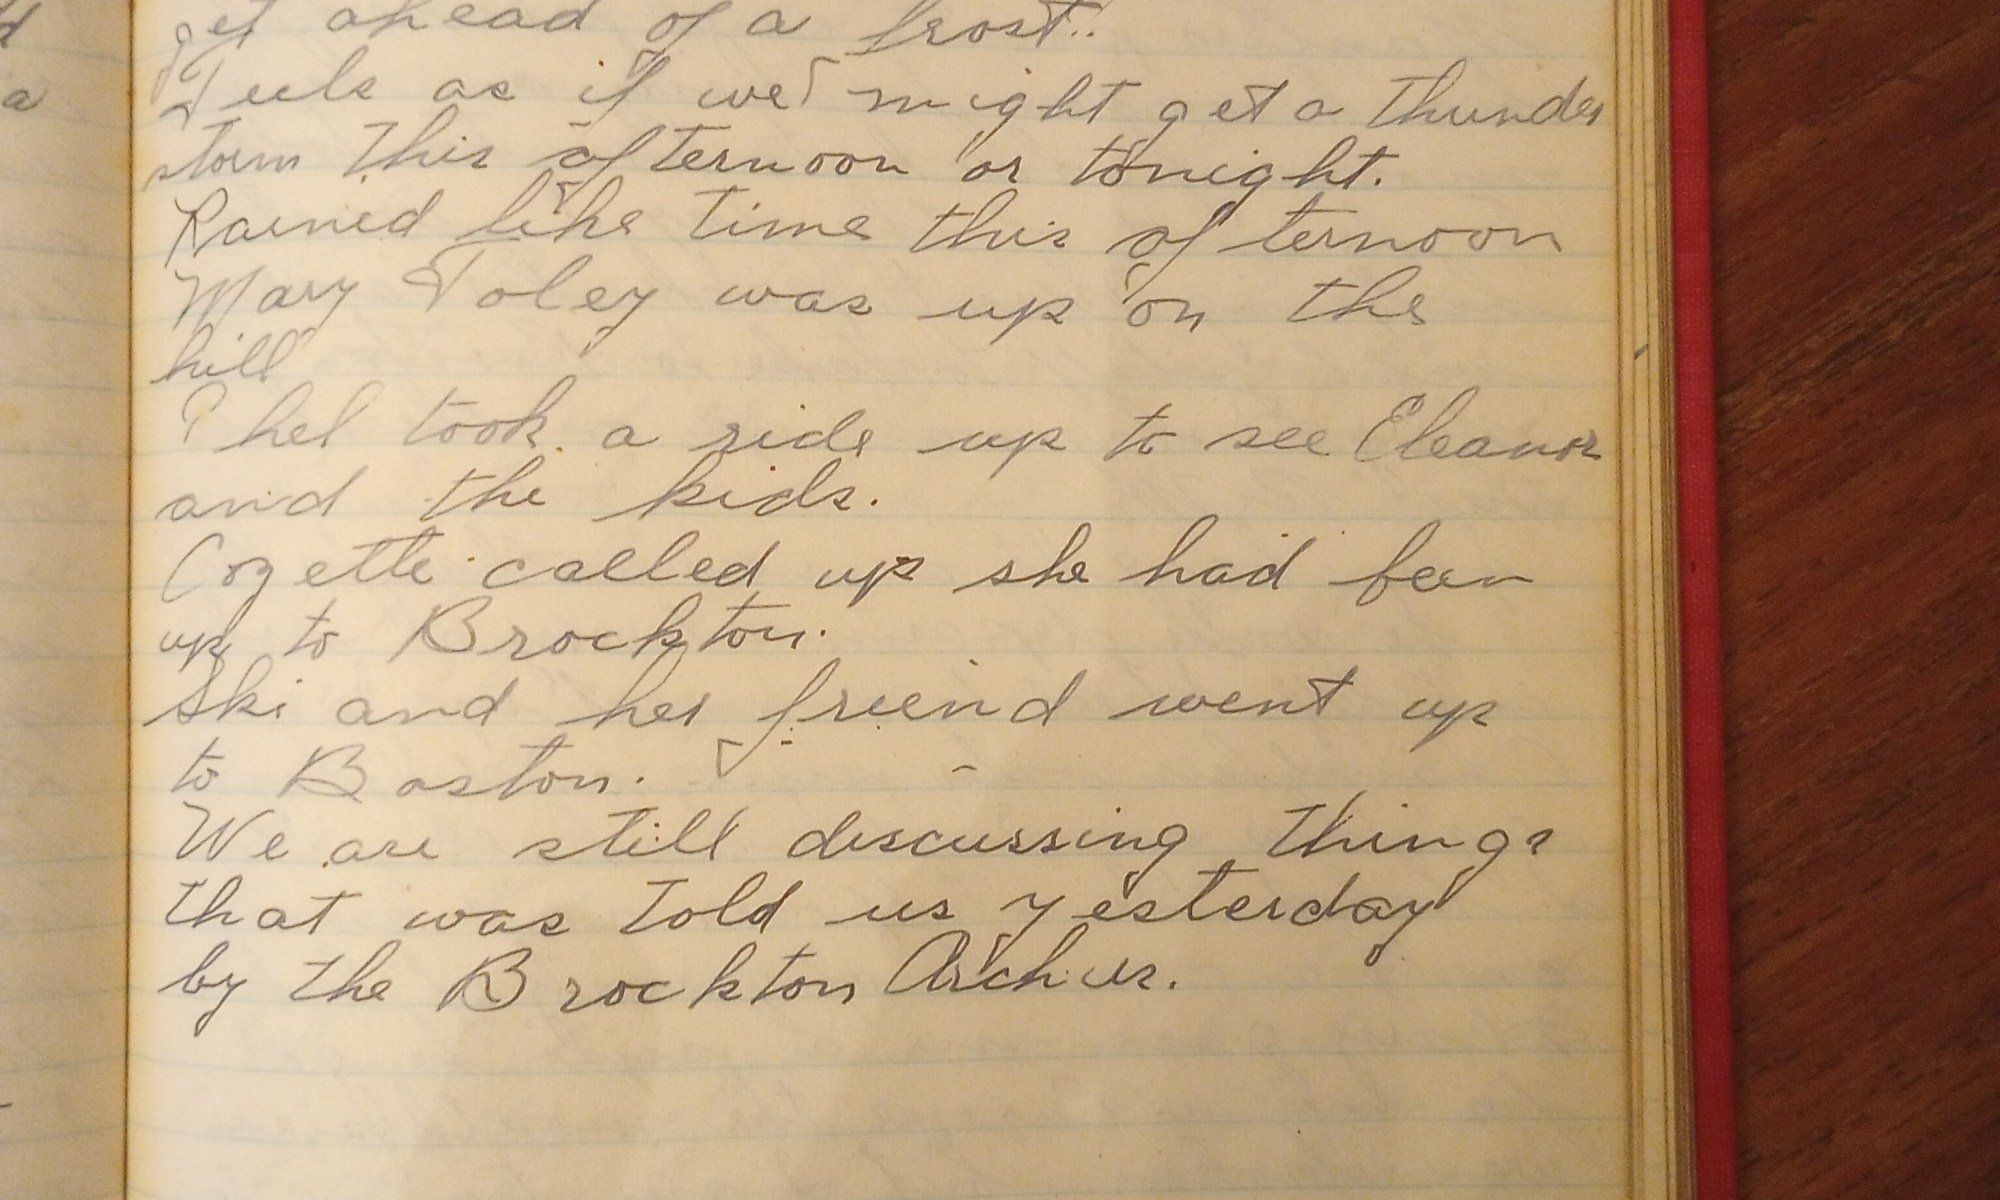 get ahead of a frost..
Feels as if we might get a thunder
storm this afternoon or tonight.
Rained like time this afternoon
Mary Foley was up on the
hill
Phel took a ride up to see Eleanor
and the kids.
Cozette called up she had been
up to Brockton.
Ski and her friend went up
to Boston.
We are still discussing things
that was told us yesterday
by the Brockton Archies.
a